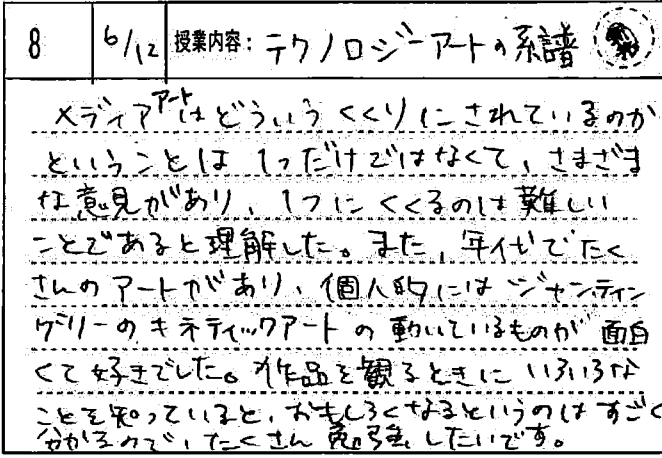 8 6/12 授業内容: テクノロジーアートの系譜
メディアアートはどういうくくりにされているのか
ということは1つだけではなくて、さまざま
な意見があり、1つにくくるのは難しい
ことであると理解した。また、年代でたく
さんのアートがあり、個人的にはジャンティン
ゲリーのキネティックアートの動いているものが面白
くて好きでした。作品を観るときにいろいろな
ことを知っていると、おもしろくなるというのはすごく
分かるので、たくさん勉強したいです。